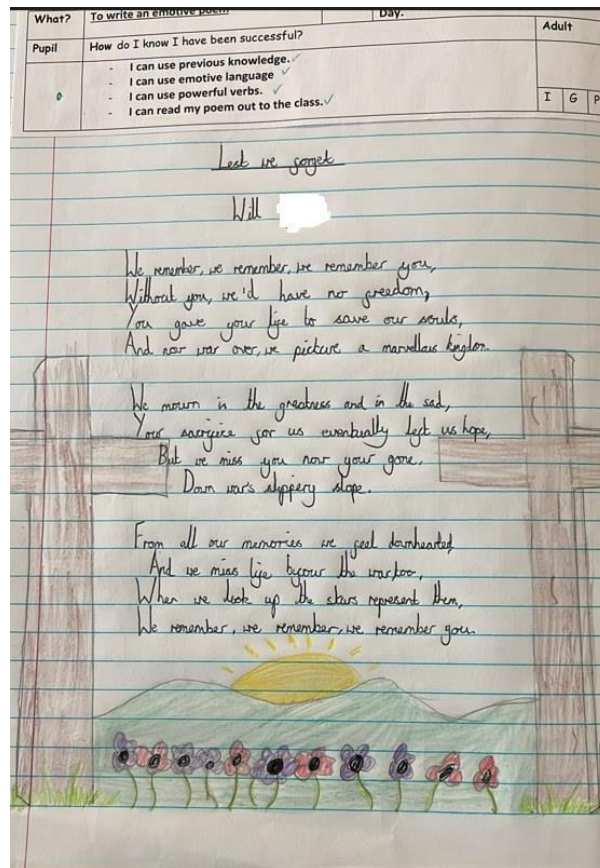 What?
To write an emotive poem
Day.
Adult
Pupil
How do I know I have been successful?
- I can use previous knowledge. ✓
- I can use emotive language ✓
- I can use powerful verbs. ✓
- I can read my poem out to the class. ✓
I G P
Lest we forget
Will
We remember, we remember, we remember you,
Without you, we'd have no freedom,
You gave your life to save our souls,
And now war over, we picture a marvellous kingdom.
We mourn in the greatness and in the sad,
Your sacrifice for us eventually left us hope,
But we miss you now your gone,
Down war's slippery slope.
From all our memories we feel downhearted,
And we miss life before the war too,
When we look up the stars represent them,
We remember, we remember, we remember you.